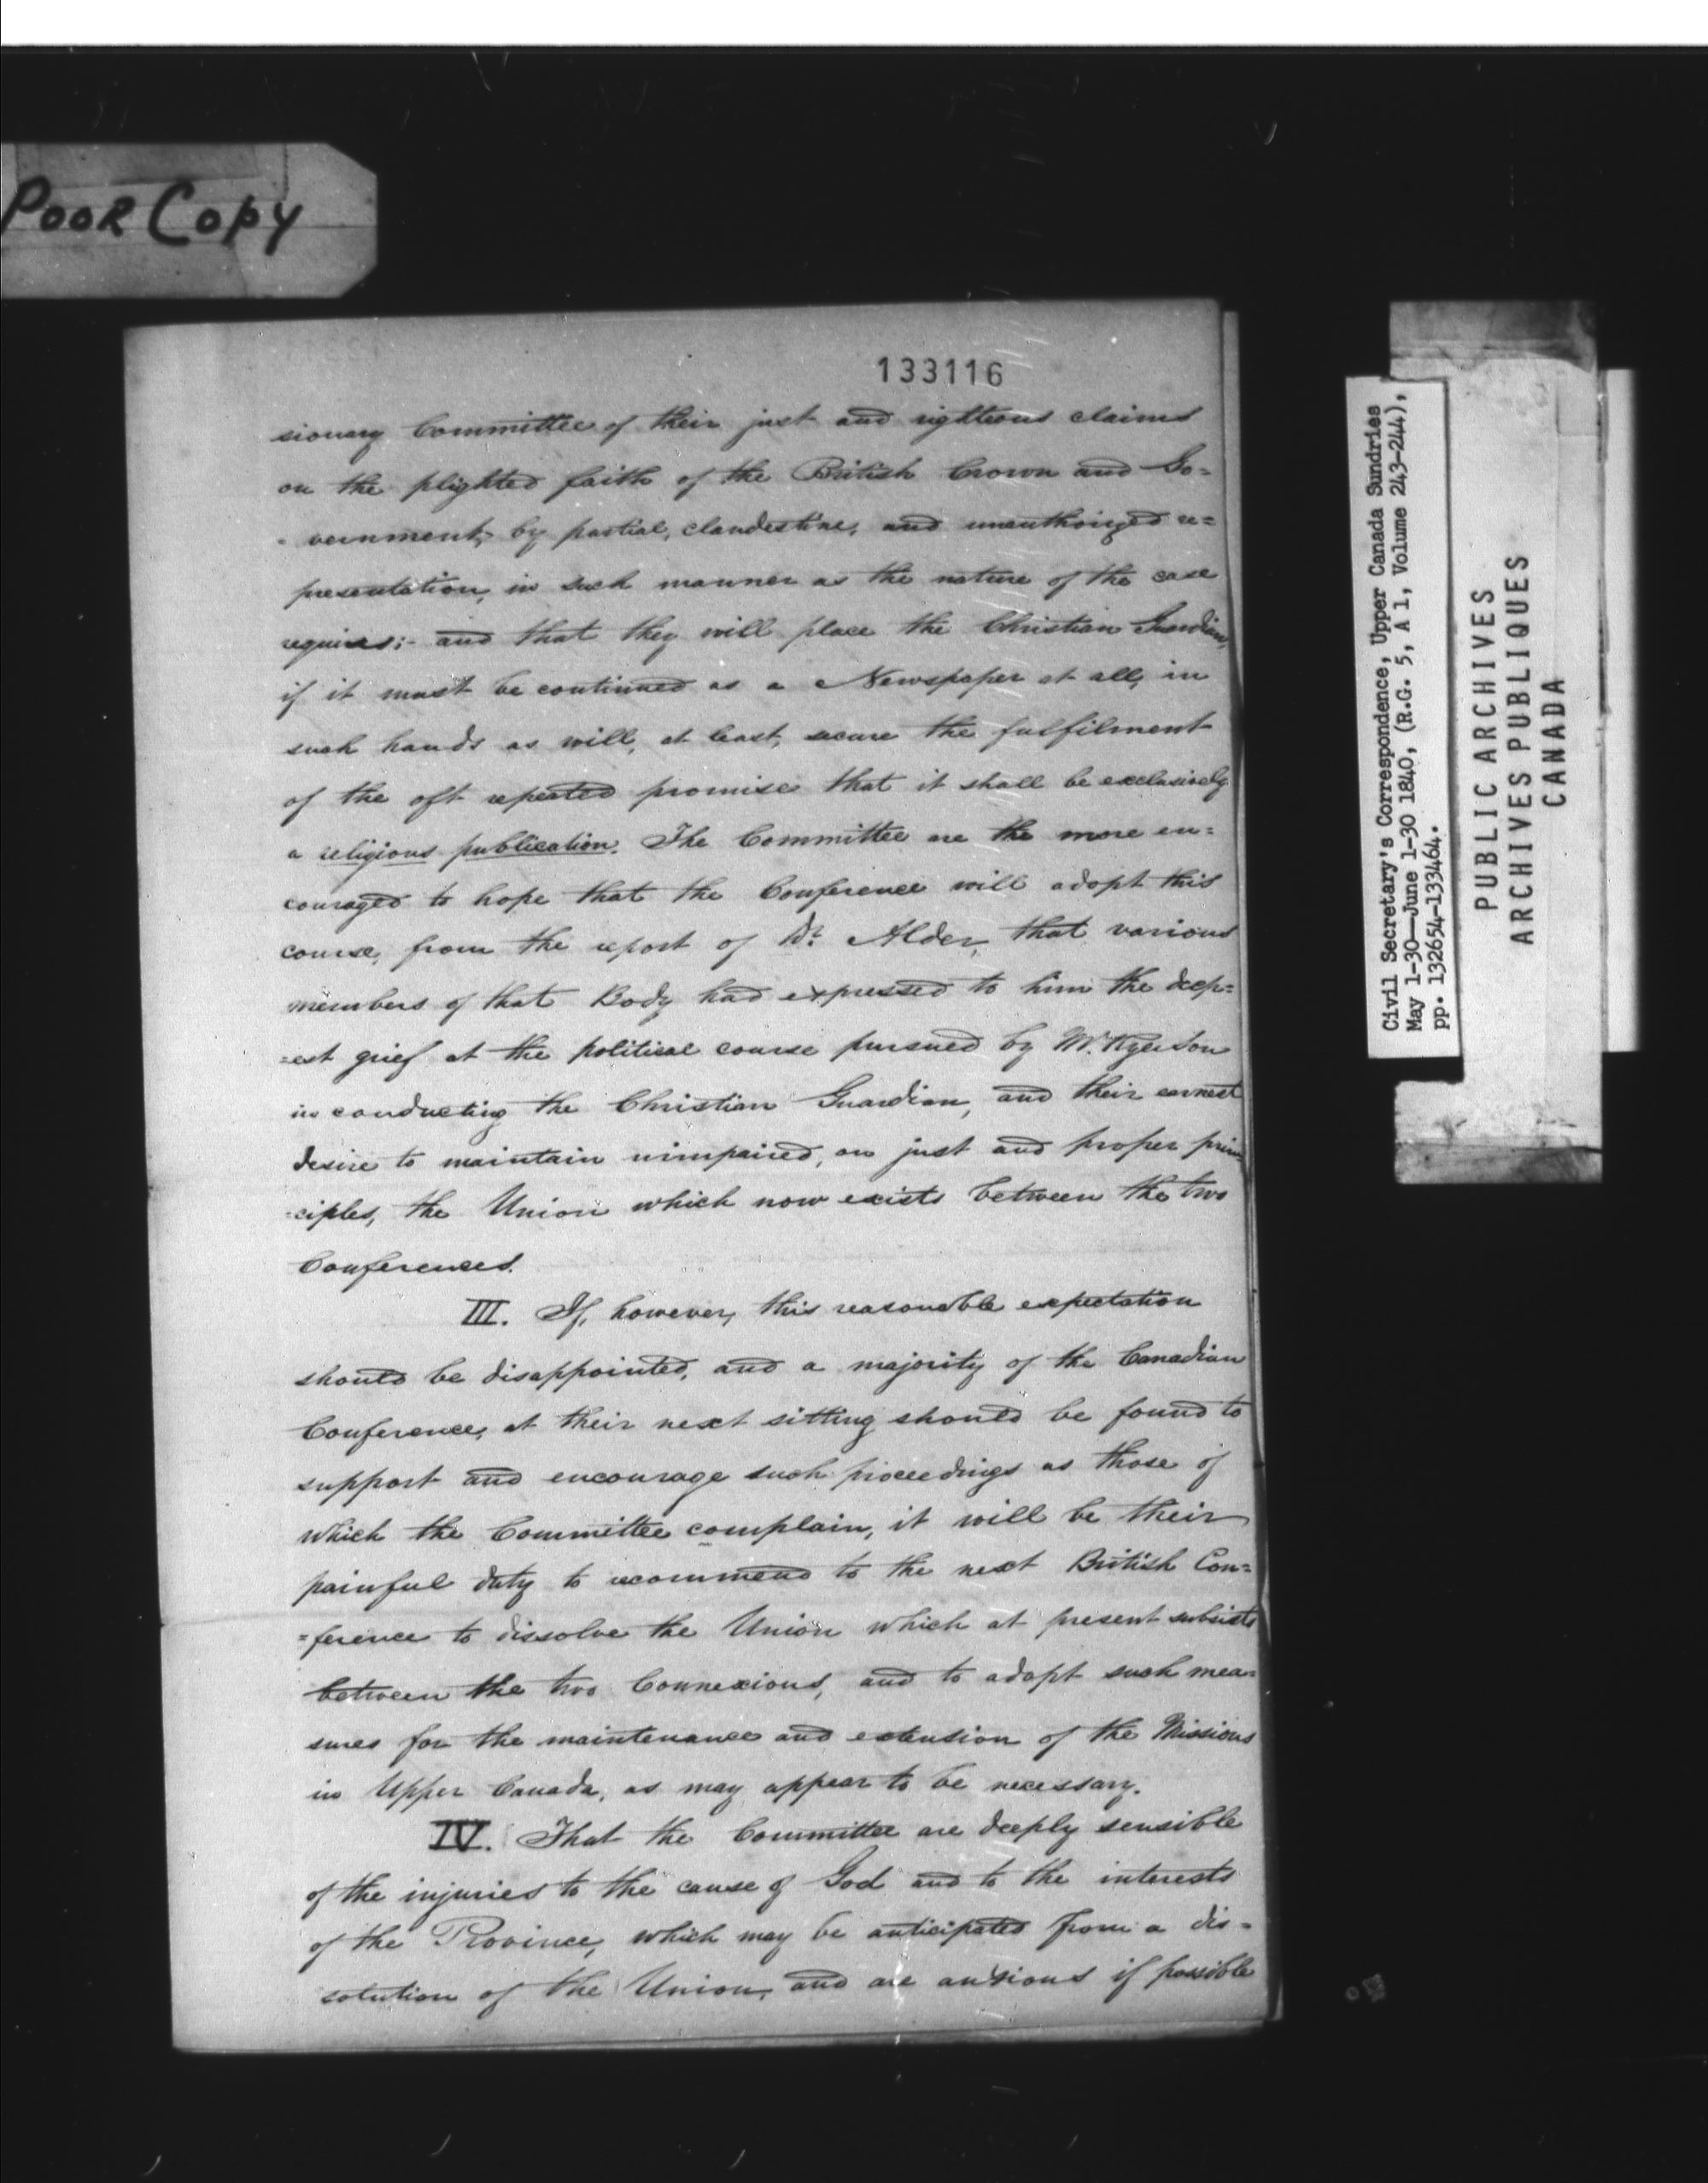 POOR COPY
133116
sionary Committee of their just and righteous claims
on the plighted faith of the British Crown and Go=
- vernment, by partial, clandestine, and unauthorized re=
presentation, in such manner as the nature of the case
requires:- and that they will place the Christian Guardian,
if it must be continued as a Newspaper at all, in
such hands as will, at least, secure the fulfilment
of the oft repeated promise that it shall be exclusively
a religious publication. The Committee are the more en=
couraged to hope that the Conference will adopt this
course, from the report of Dr. Alder, that various
members of that Body had expressed to him the deep=
=est grief at the political course pursued by Mr. Ryerson
in conducting the Christian Guardian, and their earnest
desire to maintain unimpaired, on just and proper prin=
=ciples, the Union which now exists between the two
Conferences.
III. If, however, this reasonable expectation
should be disappointed, and a majority of the Canadian
Conference, at their next sitting should be found to
support and encourage such proceedings as those of
which the Committee complain, it will be their
painful duty to recommend to the next British Con=
=ference to dissolve the Union which at present subsists
between the two Connexions, and to adopt such mea=
sures for the maintenance and extension of the Missions
in Upper Canada, as may appear to be necessary.
IV. That the Committee are deeply sensible
of the injuries to the cause of God and to the interests
of the Province, which may be anticipated from a dis=
solution of the Union, and are anxious if possible
Civil Secretary's Correspondence, Upper Canada Sundries
May 1-30—June 1-30 1840, (R.G. 5, A 1, Volume 243-244),
pp. 132654-133464.
PUBLIC ARCHIVES
ARCHIVES PUBLIQUES
CANADA